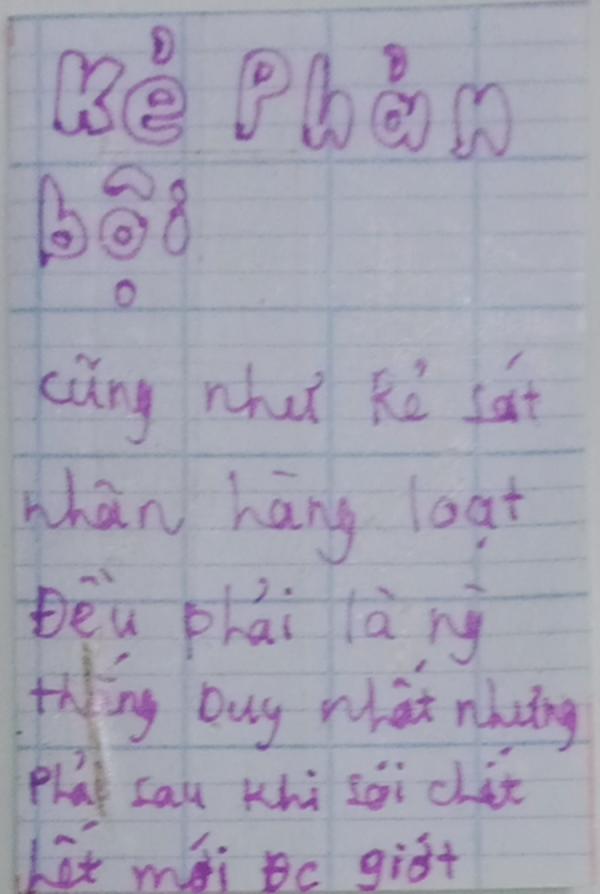 Kẻ Phản
bội
cũng như kẻ sát
nhân hàng loạt
Đều phải là ng
thắng Duy nhất nhưng
Phải sau khi sói chết
hết mới Đc giết